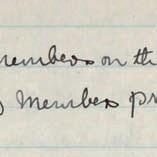 members on th
Members pr